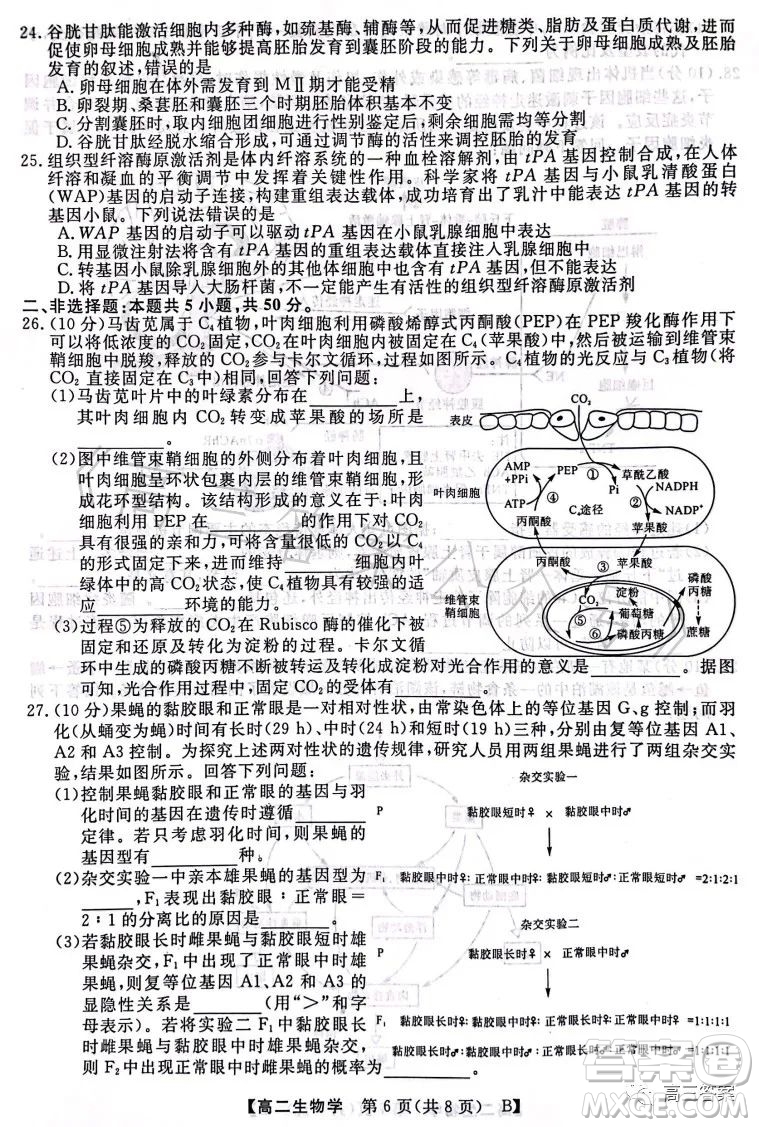 24.谷胱甘肽能激活细胞内多种酶,如巯基酶、辅酶等,从而促进糖类、脂肪及蛋白质代谢,进而
促使卵母细胞成熟并能够提高胚胎发育到囊胚阶段的能力。下列关于卵母细胞成熟及胚胎
发育的叙述,错误的是
A.卵母细胞在体外需发育到MⅡ期才能受精
B.卵裂期、桑葚胚和囊胚三个时期胚胎体积基本不变
C.分割囊胚时,取内细胞团细胞进行性别鉴定后,剩余细胞需均等分割
D.谷胱甘肽经脱水缩合形成,可通过调节酶的活性来调控胚胎的发育
25.组织型纤溶酶原激活剂是体内纤溶系统的一种血栓溶解剂,由tPA基因控制合成,在人体
纤溶和凝血的平衡调节中发挥着关键性作用。科学家将tPA基因与小鼠乳清酸蛋白
(WAP)基因的启动子连接,构建重组表达载体,成功培育出了乳汁中能表达tPA的转
基因小鼠。下列说法错误的是
A.WAP基因的启动子可以驱动tPA基因在小鼠乳腺细胞中表达
B.用显微注射法将含有tPA基因的重组表达载体直接注入乳腺细胞中
C.转基因小鼠除乳腺细胞外的其他体细胞也含有tPA基因,但不能表达
D.将tPA基因导入大肠杆菌,不一定能产生有活性的组织型纤溶酶原激活剂
二、非选择题:本题共5小题,共50分。
26.(10分)马齿苋属于C₄植物,叶肉细胞利用磷酸烯醇式丙酮酸(PEP)在PEP羧化酶作用下
可以将低浓度的CO₂固定,CO₂与PEP结合固定在C₄(苹果酸)中,然后被运输到维管束
鞘细胞中脱羧,释放的CO₂参与卡尔文循环,过程如图所示。C₄植物的光反应与C₃植物(将
CO₂直接固定在C₃中)相同,回答下列问题:
(1)马齿苋叶片中的叶绿素分布在________上,
其叶肉细胞内CO₂转变成苹果酸的场所是
________。
(2)图中维管束鞘细胞的外侧分布着叶肉细胞,且
叶肉细胞呈环状包裹内层的维管束鞘细胞,形
成花环型结构。该结构形成的意义在于:叶肉
细胞利用PEP在________的作用下对CO₂
具有很强的亲和力,可将含量很低的CO₂以C₄
的形式固定下来,进而维持________细胞内叶
绿体中的高CO₂状态,使C₄植物具有较强的适
应________环境的能力。
(3)过程⑤为释放的CO₂在Rubisco酶的催化下被
固定和还原及转化为淀粉的过程。卡尔文循
环中生成的磷酸丙糖不断被转运及转化成淀粉对光合作用的意义是________。据图
可知,光合作用过程中,固定CO₂的受体有________。
表皮
CO₂
叶肉细胞
AMP
+PPi
PEP
①
草酰乙酸
Pi
NADPH
ATP
④
②
NADP⁺
C₄途径
丙酮酸
苹果酸
丙酮酸
③
苹果酸
维管束
鞘细胞
CO₂
淀粉
磷酸
丙糖
⑤
葡萄糖
⑥
磷酸丙糖
蔗糖
27.(10分)果蝇的黏胶眼和正常眼是一对相对性状,由常染色体上的等位基因G、g控制;而羽
化(从蛹变为蝇)时间有长时(29 h)、中时(24 h)和短时(19 h)三种,分别由复等位基因A1、
A2和A3控制。为探究上述两对性状的遗传规律,研究人员用两组果蝇进行了两组杂交实
验,结果如图所示。回答下列问题:
(1)控制果蝇的黏胶眼和正常眼的基因与羽
化时间的基因在遗传时遵循________
定律。若只考虑羽化时间,则雄果蝇的
基因型有________种。
(2)杂交实验一中亲本雄果蝇的基因型为
________,F₁出现黏胶眼∶正常眼=
2∶1的分离比的原因是________。
(3)若黏胶眼长时雌果蝇与黏胶眼短时雄
果蝇杂交,F₁中出现了正常眼中时雄果
蝇,则复等位基因A1、A2和A3的
显隐性关系是________(用“>”和字
母表示)。若将实验二F₁中正常眼长时
雌果蝇与黏胶眼中时雄果蝇杂交,
则F₂中出现黏胶眼中时雄蝇的概率为________。
杂交实验一
P 黏胶眼短时♀ × 黏胶眼中时♂
F₁ 黏胶眼中时♀∶正常眼中时♀∶黏胶眼短时♂∶正常眼短时♂ =2:1:2:1
杂交实验二
P 黏胶眼长时♀ × 正常眼中时♂
F₁ 黏胶眼长时♀∶黏胶眼中时♂∶正常眼长时♀∶正常眼中时♂ =1:1:1:1
【高二生物学 第6页(共8页) B】
高三答案